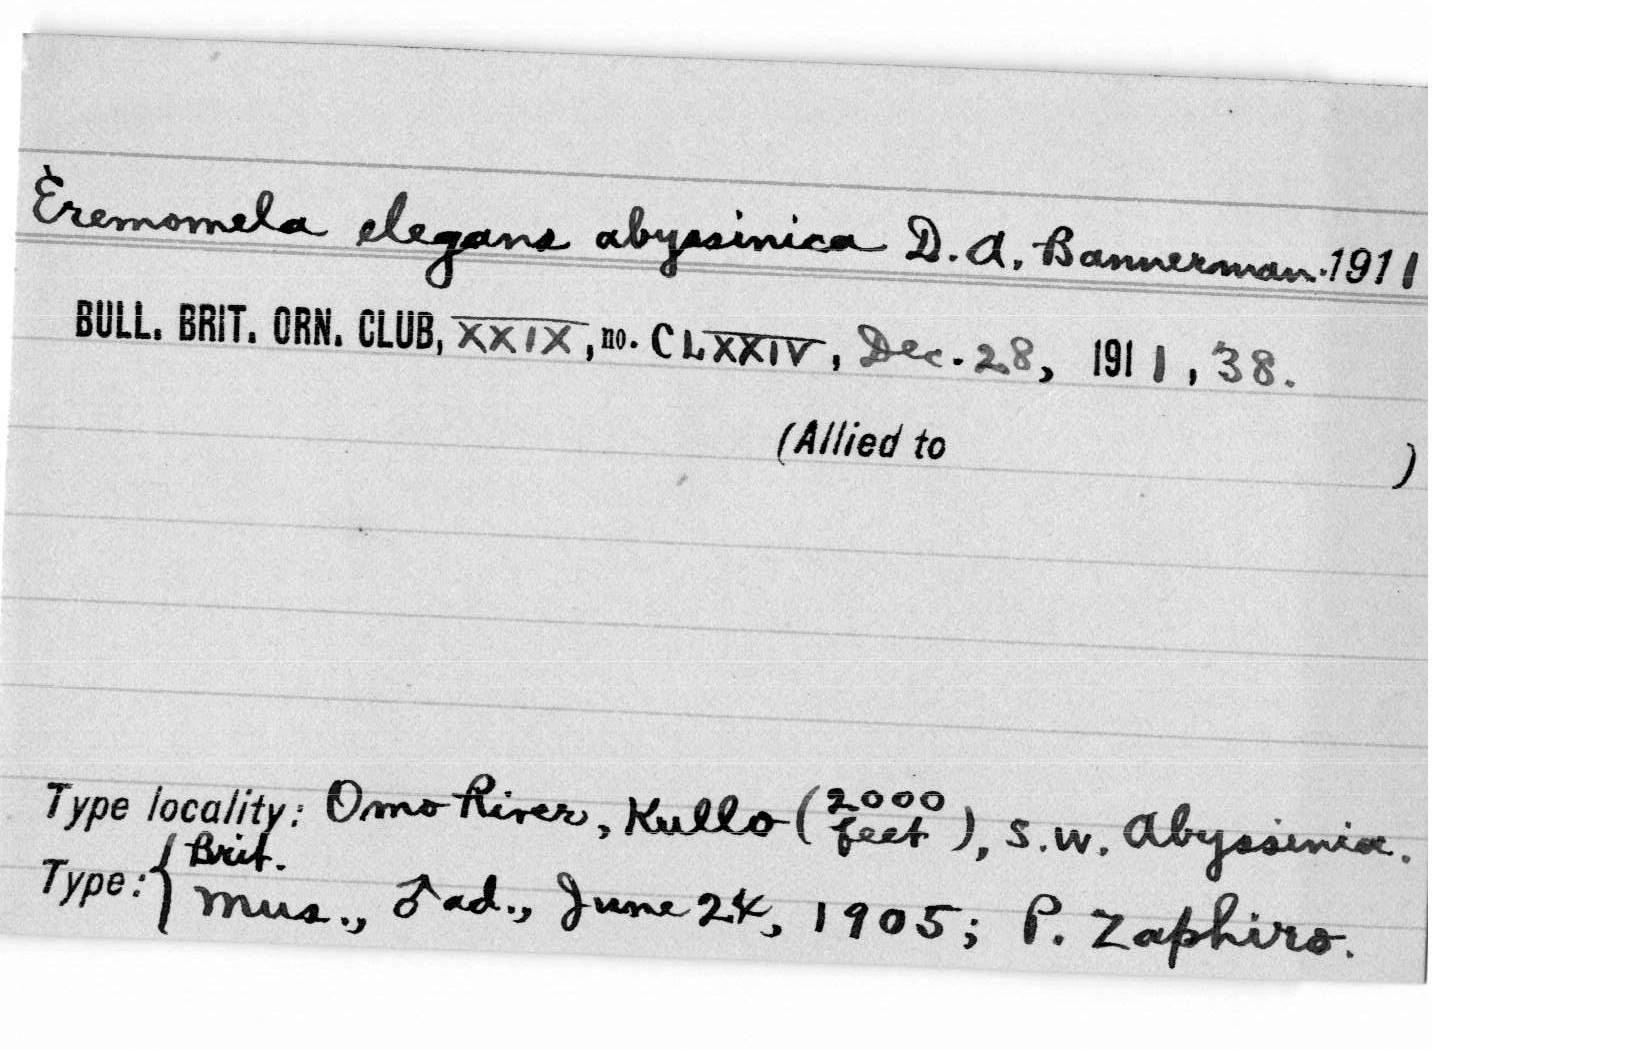 Eremomela elegans abyssinica D. A. Bannerman. 1911
BULL. BRIT. ORN. CLUB, XXIX, no. CLXXIV, Dec. 28, 1911, 38.
(Allied to )
Type locality: Omo River, Kullo (2000 feet), S.W. Abyssinia.
Type: { Brit.
Mus., ♂ ad., June 24, 1905; P. Zaphiro.